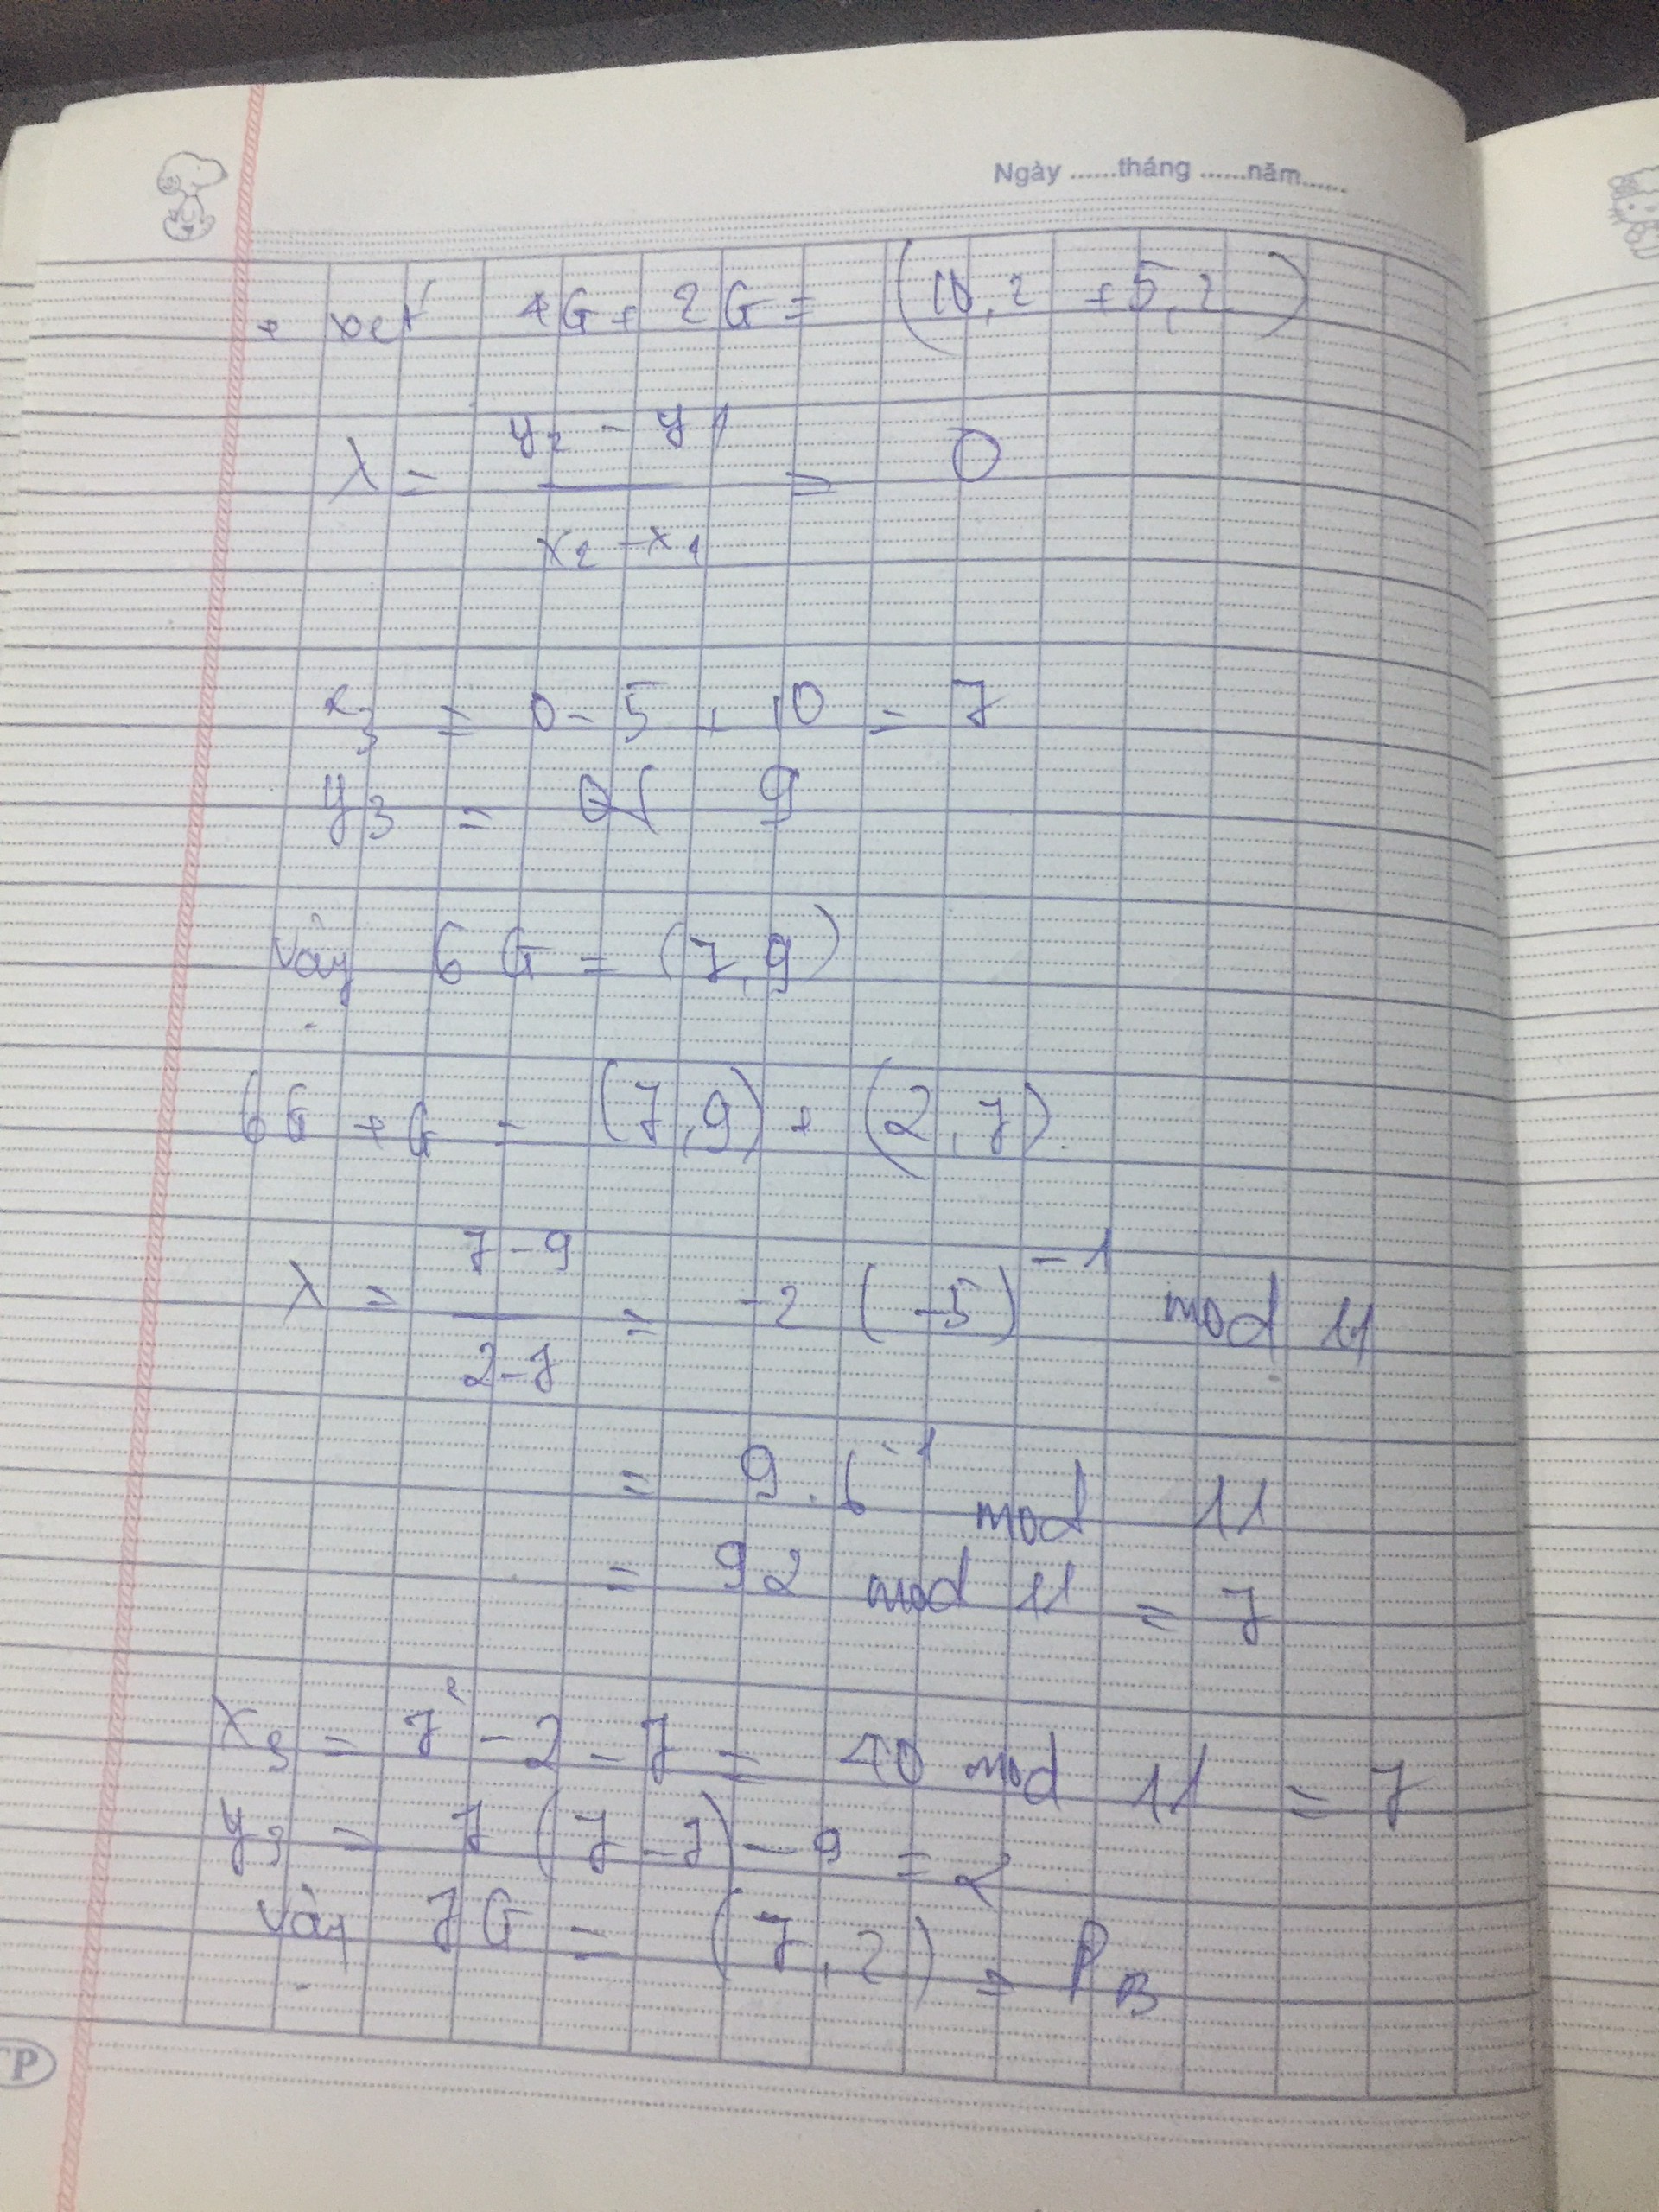 Ngày ......tháng ......năm......
+ xét 4G + 2G = (10,2 + 5,2)
λ = (y2 - y1) / (x2 - x1) = 0
x3 = 0 - 5 + 10 = 7
y3 = 9
Vậy 6G = (7,9)
6G + G = (7,9) + (2,7).
λ = (7-9) / (2-7) = -2 (-5)^-1 mod 11
= 9.6^-1 mod 11
= 92 mod 11 = 7
x3 = 7² - 2 - 7 = 40 mod 11 = 7
y3 = 7 (7-7) - 9 = 2
Vậy 7G = (7,2) = PB
TP